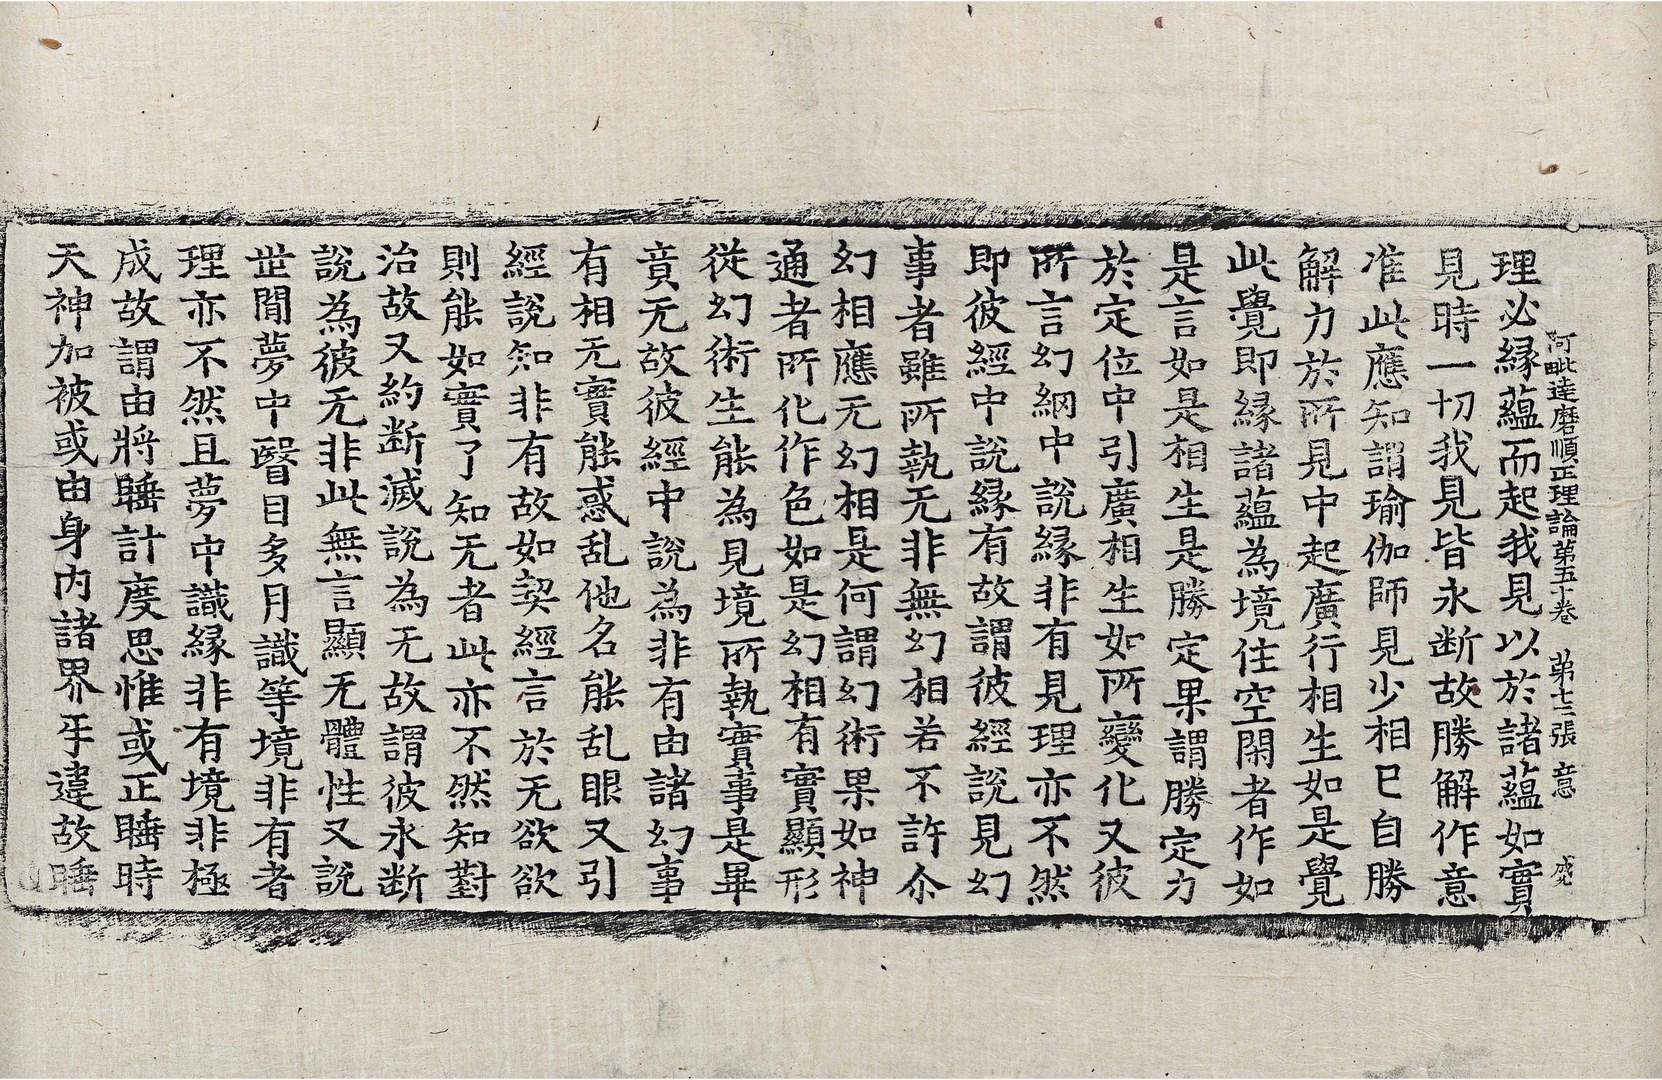 阿毗達磨順正理論第五十卷 第七三張 意 成九
理必緣蘊而起我見以於諸蘊如實
見時一切我見皆永断故勝解作意
准此應知謂瑜伽師見少相巳自勝
解力於所見中起廣行相生如是覺
此覺即緣諸蘊為境住空閑者作如
是言如是相生是勝定果謂勝定力
於定位中引廣相生如所變化又彼
所言幻網中說緣非有見理亦不然
即彼經中說緣有故謂彼經說見幻
事者雖所執无非無幻相若不許尒
幻相應无幻相是何謂幻術果如神
通者所化作色如是幻相有實顯形
從幻術生能為見境所執實事是畢
竟无故彼經中說為非有由諸幻事
有相无實能惑乱他名能乱眼又引
經說知非有故如契經言於无欲欲
則能如實了知无者此亦不然知對
治故又約断滅說為无故謂彼永断
說為彼无非此無言顯无體性又說
世間夢中瞖目多月識等境非有者
理亦不然且夢中識緣非有境非極
成故謂由將睡計度思惟或正睡時
天神加被或由身內諸界乖違故睡